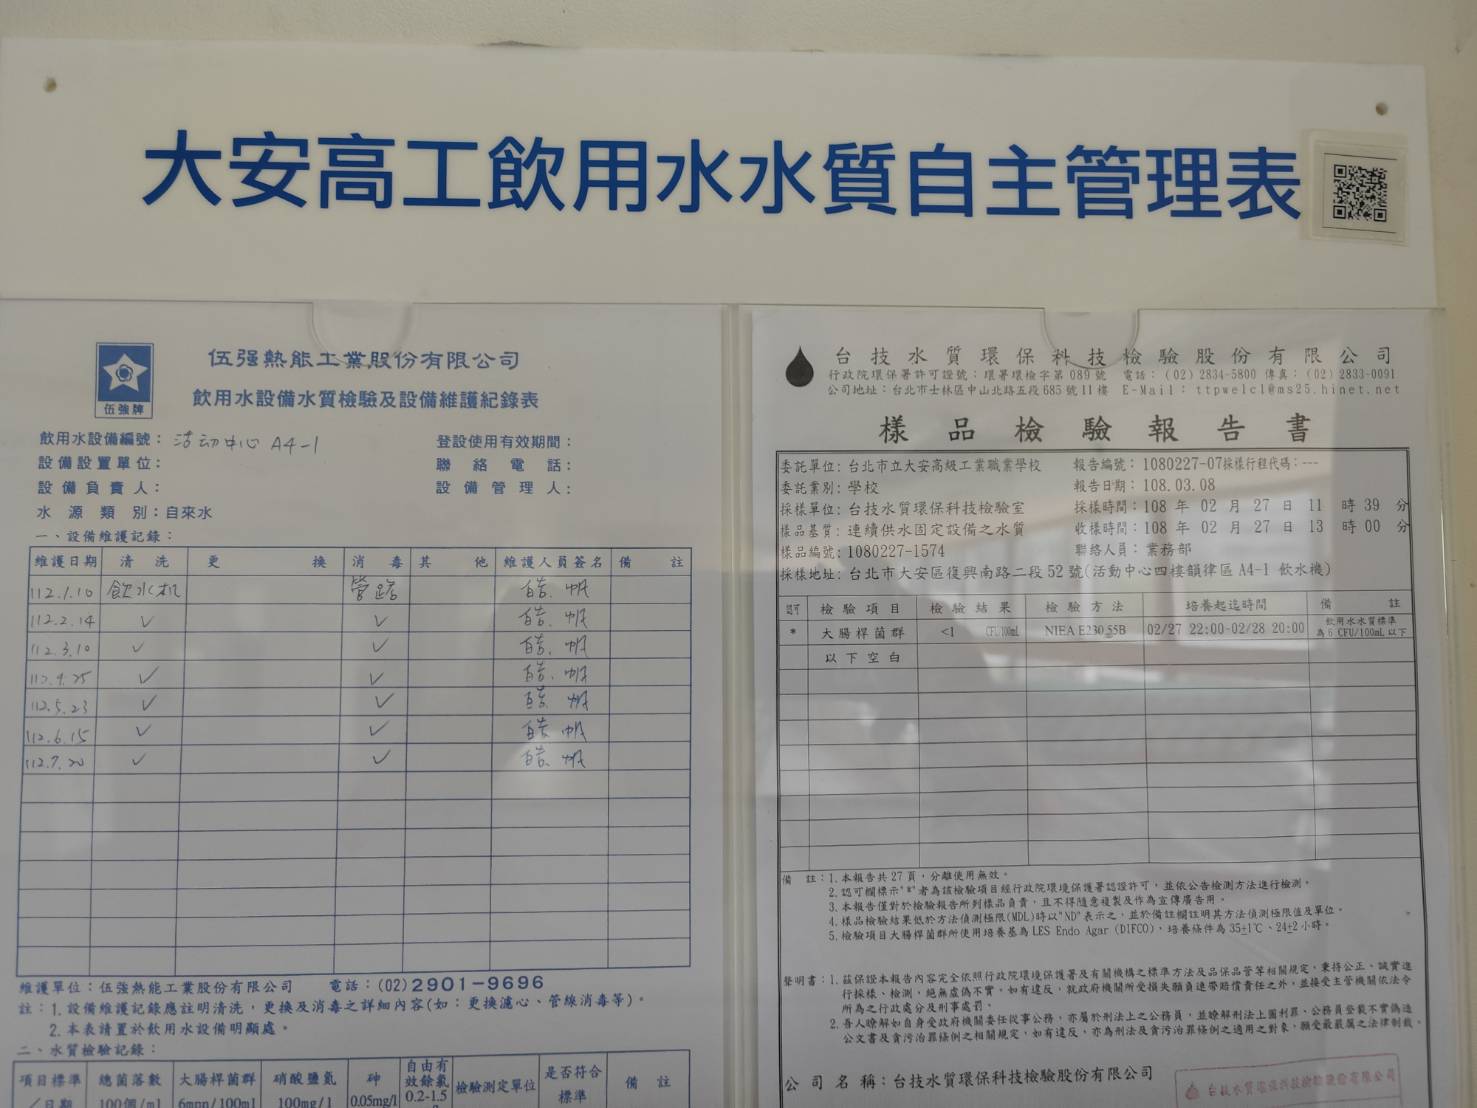 大安高工飲用水水質自主管理表
伍强熱能工業股份有限公司
飲用水設備水質檢驗及設備維護紀錄表
伍強牌
飲用水設備編號：活动中心 A4-1
登設使用有效期間：
設備設置單位：
聯絡電話：
設備負責人：
設備管理人：
水源類別：自來水
一、設備維護記錄：
維護日期 清洗 更換 消毒 其他 維護人員簽名 備註
112.1.10 飲水机 管路
112.2.14 ✓ ✓
112.3.10 ✓ ✓
112.4.25 ✓ ✓
112.5.23 ✓ ✓
112.6.15 ✓ ✓
112.7.20 ✓ ✓
維護單位：伍強熱能工業股份有限公司 電話：(02)2901-9696
註：1.設備維護記錄應註明清洗，更換及消毒之詳細內容(如：更換濾心、管線消毒等)。
2.本表請置於飲用水設備明顯處。
二、水質檢驗記錄：
項目標準 總菌落數 大腸桿菌群 硝酸鹽氮 砷 自由有效餘氯 檢驗測定單位 是否符合標準 備註
／日期 100個/ml 6mpn/100ml 100mg/l 0.05mg/l 0.2-1.5
台技水質環保科技檢驗股份有限公司
行政院環保署許可證號：環署環檢字第089號 電話：(02)2834-5800 傳真：(02)2833-0091
公司地址：台北市士林區中山北路五段685號11樓 E-Mail：ttpwelcl@ms25.hinet.net
樣品檢驗報告書
委託單位：台北市立大安高級工業職業學校 報告編號：1080227-07採樣行程代碼：---
委託業別：學校 報告日期：108.03.08
採樣單位：台技水質環保科技檢驗室 採樣時間：108 年 02 月 27 日 11 時 39 分
樣品基質：連續供水固定設備之水質 收樣時間：108 年 02 月 27 日 13 時 00 分
樣品編號：1080227-1574 聯絡人員：業務部
採樣地址：台北市大安區復興南路二段52號(活動中心四樓韻律區A4-1 飲水機)
認可 檢驗項目 檢驗結果 檢驗方法 培養起迄時間 備註
* 大腸桿菌群 <1 CFU/100mL NIEA E230.55B 02/27 22:00-02/28 20:00 飲用水水質標準為6 CFU/100mL以下
以下空白
備註：1.本報告共27頁，分離使用無效。
2.認可欄標示"*"者為該檢驗項目經行政院環境保護署認證許可，並依公告檢測方法進行檢測。
3.本報告僅對於檢驗報告所列樣品負責，且不得隨意複製及作為宣傳廣告用。
4.樣品檢驗結果低於方法偵測極限(MDL)時以"ND"表示之，並於備註欄註明其方法偵測極限值及單位。
5.檢驗項目大腸桿菌群所使用培養基為LES Endo Agar (DIFCO)，培養條件為35±1℃、24±2小時。
聲明書：1.茲保證本報告內容完全依照行政院環境保護署及有關機構之標準方法及品保品管等相關規定，秉持公正、誠實進
行採樣、檢測，絕無虛偽不實，如有違反，就政府機關所受損失願負連帶賠償責任之外，並接受主管機關依法令
所為之行政處分及刑事處罰。
2.吾人瞭解如自身受政府機關委任從事公務，亦屬於刑法上之公務員，並瞭解刑法上圖利罪、公務員登載不實偽造
公文書及貪污治罪條例之相關規定，如有違反，亦為刑法及貪污治罪條例之適用之對象，願受最嚴厲之法律制裁。
公司名稱：台技水質環保科技檢驗股份有限公司
台技水質環保科技檢驗股份有限公司